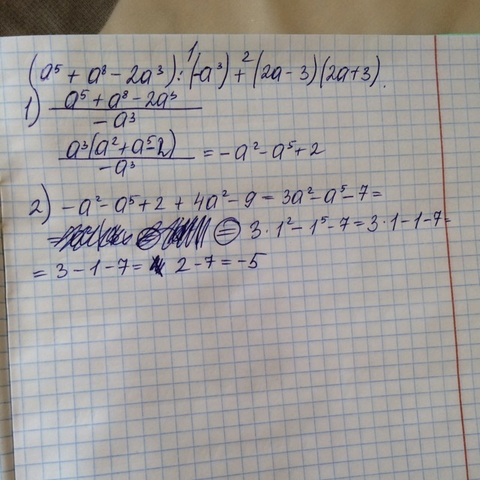 (a⁵ + a⁸ - 2a³) :¹ (-a³) +² (2a - 3)(2a + 3).
1) a⁵ + a⁸ - 2a³
- a³
a³(a² + a⁵ - 2)
- a³
= - a² - a⁵ + 2
2) - a² - a⁵ + 2 + 4a² - 9 = 3a² - a⁵ - 7 =
= = 3 · 1² - 1⁵ - 7 = 3 · 1 - 1 - 7 =
= 3 - 1 - 7 = 2 - 7 = -5